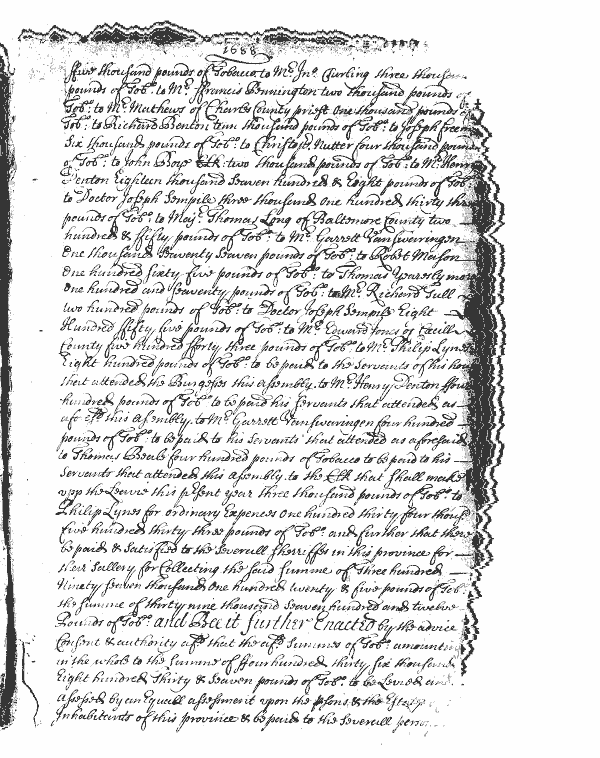 1688
ffive thousand pounds of Tobacco to Mr. Jno. Curling three thousan
pounds of Tob: to Mr. ffrancis Pennington two thousand pounds of
Tob: to Mr. Mathews of Charles County priest One thousand pounds of
Tob: to Richard Benton tenn thousand pounds of Tob: to Joseph
Six thousand pounds of Tob: to Christop. Nutter four thousand pound
of Tob: to John Boye Clk: two thousand pounds of Tob: to Mr. Henry
Denton Eighteen thousand Seaven hundred & Eight pounds of Tob
to Doctor Joseph Sempile three thousand one hundred thirty three
pounds of Tob: to Majr. Thomas Long of Baltemore County two
hundred & ffifty pounds of Tob: to Mr. Garrett Vansweringen
One thousand Seaventy Seaven pounds of Tob: to Robt Mason
One hundred sixty five pounds of Tob: to Thomas more
One hundred and Seaventy pounds of Tob: to Mr. Richard Tull
two hundred pounds of Tob: to Doctor Joseph Sempile Eight
Hundred ffifty five pounds of Tob: to Mr. Edward Jones of Cecill
County five hundred fforty three pounds of Tob: to Mr. Philip Lynes
Eight hundred pounds of Tob: to be paid to the Servants of his hou
that attended the Burgeses this assembly. to Mr. Henry Denton ffour
hundred pounds of Tob: to be paid his servants that attended as
afcesd this assembly. to Mr. Garrett Vansweringen four hundred
pounds of Tob: to be paid to his Servants that attended as aforesaid
to Thomas Beale four hundred pounds of Tobacco to be paid to his
Servants that attended this assembly. to the Clk that shall make
upp the Leavie this psent year three thousand pounds of Tob: to
Philip Lynes for ordinary Expences One hundred thirty four thous
five hundred thirty three pounds of Tob: and further that there
be paid & Satisfied to the Severall Sherriffes in this province for
their Sallery for Collecting the said Summe of three hundred
Ninety Seaven thousand One hundred twenty & five pounds of Tob:
the summe of thirty nine thousand Seaven hundred and twelve
Pounds of Tob: and Bee it further Enacted by the advice
Consent & authority afsd that the afsd Summes of Tob: amountin
in the whole to the Summe of ffour hundred thirty Six thousand
Eight hundred Thirty & Seaven pounds of Tob: to be Levied and
assessed by an Equall assessment upon the psons & the
Inhabitants of this province & be paid to the Severall